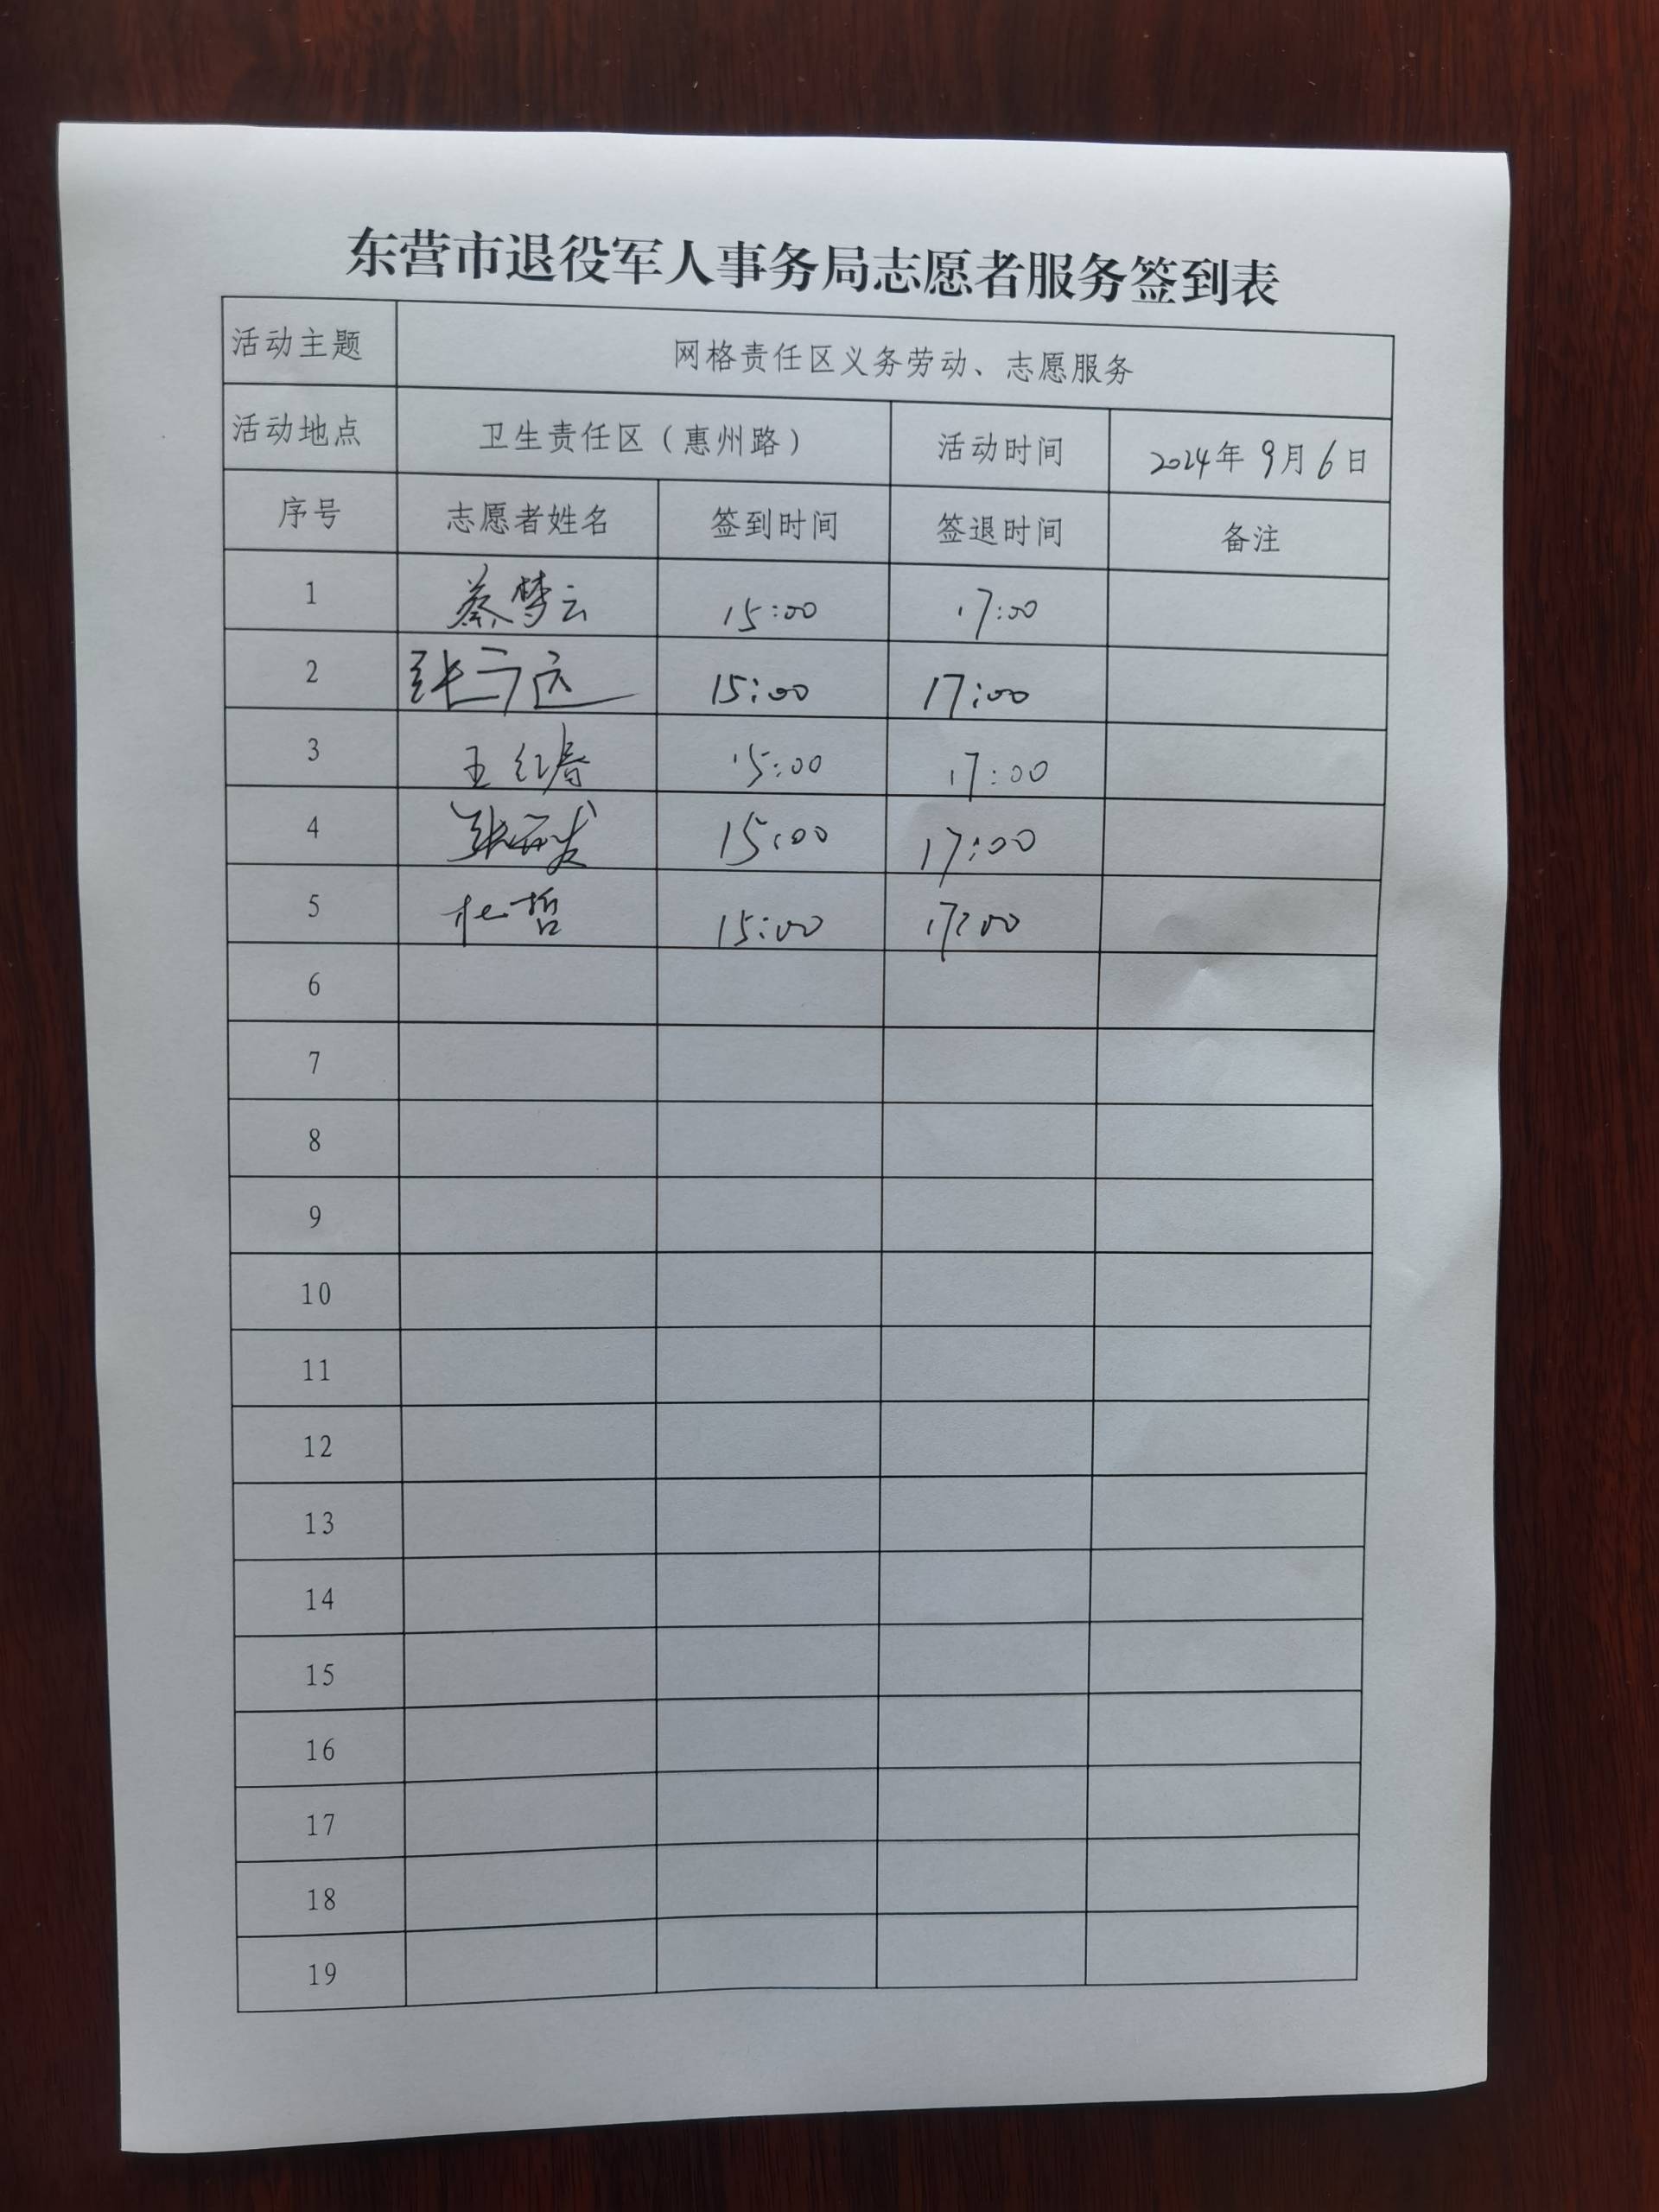 东营市退役军人事务局志愿者服务签到表
活动主题 网格责任区义务劳动、志愿服务
活动地点 卫生责任区（惠州路） 活动时间 2024年9月6日
序号 志愿者姓名 签到时间 签退时间 备注
1 蔡梦云 15:00 17:00
2 15:00 17:00
3 王红春 15:00 17:00
4 15:00 17:00
5 杜哲 15:00 17:00
6
7
8
9
10
11
12
13
14
15
16
17
18
19